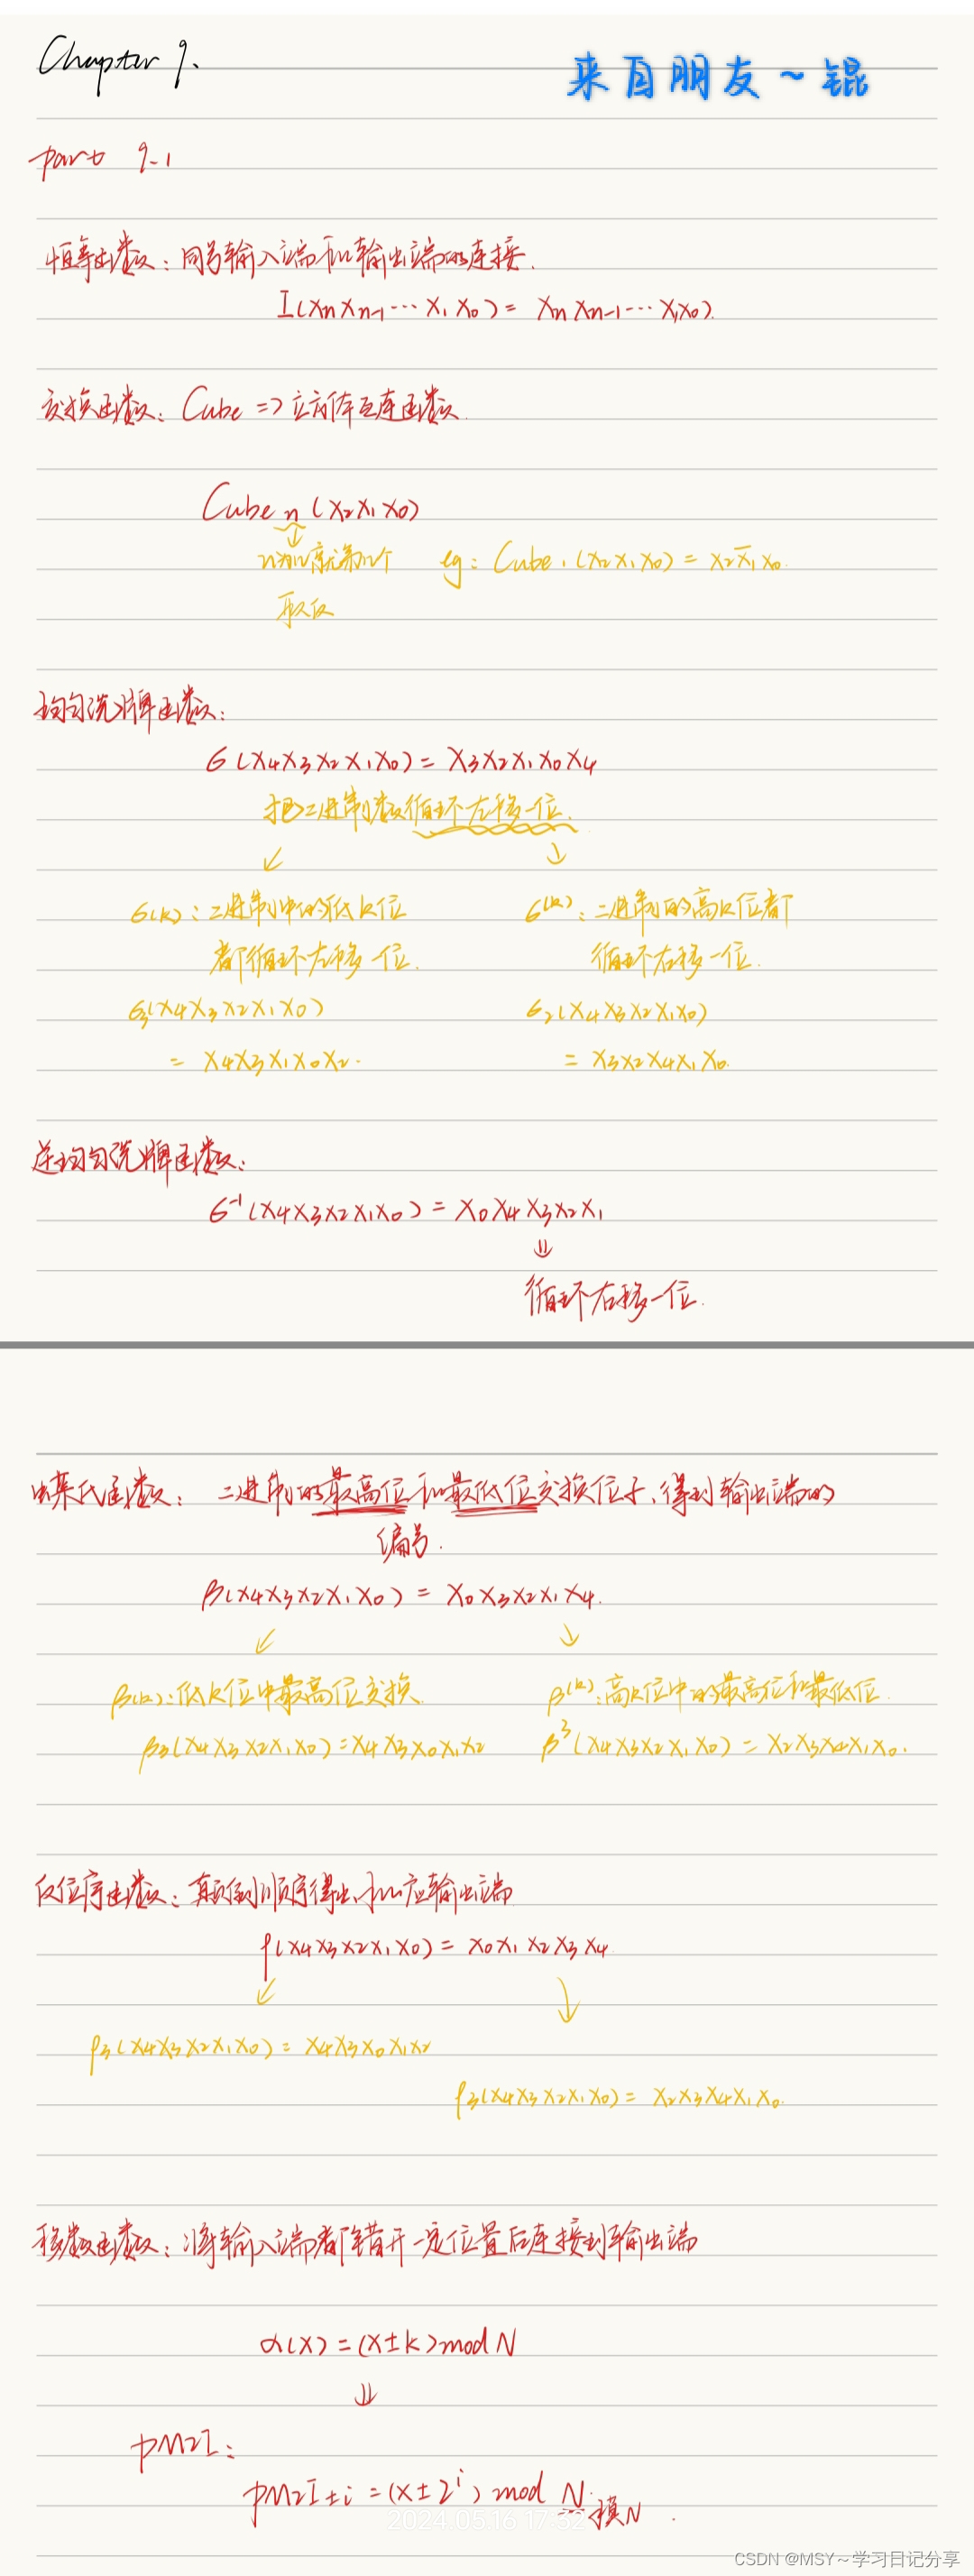 Chapter 9.
来自朋友～锟
part 9-1
恒等函数：同号输入端和输出端的连接.
I(XnXn-1···X1X0) = XnXn-1···X1X0).
交换函数：Cube => 立方体互连函数.
Cube n (X2X1X0)
↓
n为几就第几个
取反
eg: Cube1(X2X1X0) = X2X̄1X0.
均匀洗牌函数：
σ(X4X3X2X1X0) = X3X2X1X0X4
把二进制数循环左移一位.
↙ ↓
σ(k): 二进制中的低k位
都循环左移一位.
σ3(X4X3X2X1X0)
= X4X3X1X0X2.
σ^(k): 二进制的高k位都
循环左移一位.
σ2(X4X3X2X1X0)
= X3X2X4X1X0.
逆均匀洗牌函数：
σ^-1(X4X3X2X1X0) = X0X4X3X2X1
⇓
循环右移一位.
蝶式函数：二进制的最高位和最低位交换位子，得到输出端的
编号.
β(X4X3X2X1X0) = X0X3X2X1X4.
↙ ↓
β(k): 低k位中最高位交换.
β3(X4X3X2X1X0) = X4X3X0X1X2
β^(k): 高k位中的最高位和最低位.
β^3(X4X3X2X1X0) = X2X3X4X1X0.
反位序函数：颠倒顺序得出相应输出端
ρ(X4X3X2X1X0) = X0X1X2X3X4
↙ ↓
ρ3(X4X3X2X1X0) = X4X3X0X1X2
ρ3(X4X3X2X1X0) = X2X3X4X1X0.
移数函数：将输入端都错开一定位置后连接到输出端
α(X) = (X±k) mod N
⇓
PM2I:
PM2I±i = (X±2^i) mod N. 模N.
2024.05.16 17:32
CSDN @MSY～学习日记分享